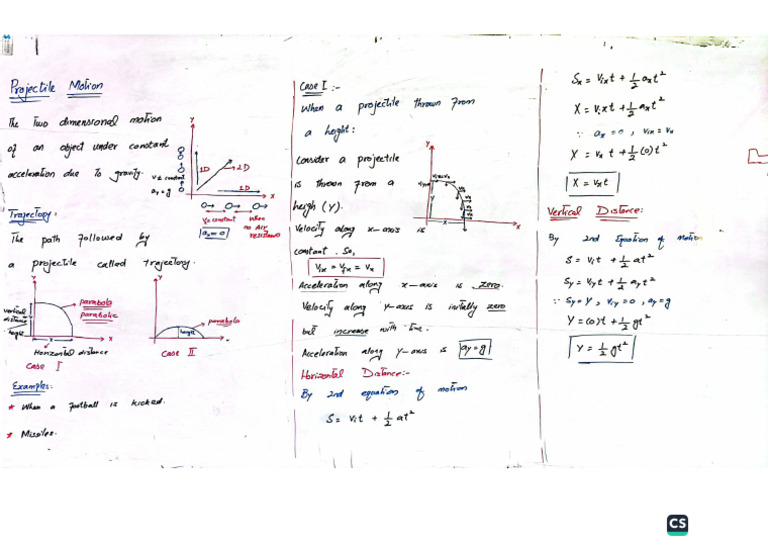 Projectile Motion
The two dimensional motion
of an object under constant
acceleration due to gravity.
Y
1D
2D
1D
X
ay = g
Vx constant
ax = 0
when
no Air
resistance
Trajectory:
The path followed by
a projectile called trajectory.
Y
vertical
distance
height
parabola
parabolic
X
x
Horizontal distance
CASE I
Y
height
parabola
CASE II
Examples:
* When a football is kicked.
* Missiles.
Case I :-
When a projectile thrown from
a height:
Consider a projectile
is thrown from a
heigh (Y).
Y
Y
x
X
Velocity along x-axis is
constant. So,
Vix = Vfx = Vx
Acceleration along x-axis is zero.
Velocity along Y-axis is initially zero
but increase with time.
Acceleration along Y-axis is ay = g
Horizontal Distance:-
By 2nd equation of motion
S = Vit + 1/2 at²
Sx = Vixt + 1/2 axt²
X = Vixt + 1/2 axt²
∵ ax = 0, Vix = Vx
X = Vxt + 1/2 (0)t²
X = Vxt
Vertical Distance:
By 2nd Equation of motion
S = Vit + 1/2 at²
Sy = Vyt + 1/2 ayt²
∵ Sy = Y, Viy = 0, ay = g
Y = (0)t + 1/2 gt²
Y = 1/2 gt²
CS